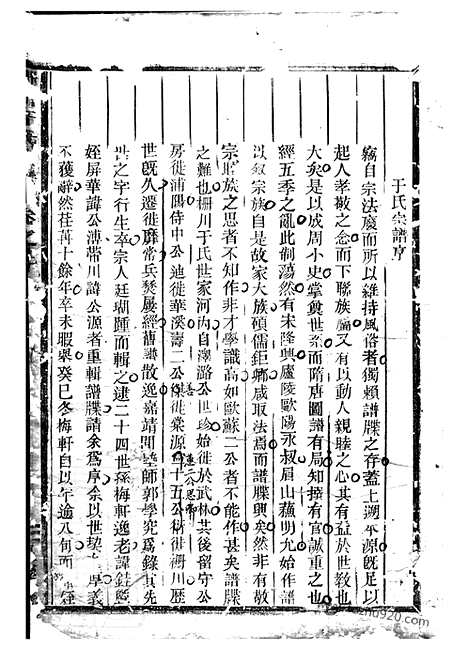 于氏宗譜序
竊自宗法廢而所以維持風俗者獨賴譜牒之存蓋上溯平源既足以
起人孝敬之念而下聯族屬又有以動人親睦之心其有益於世教也
大矣是以成周小史掌奠世系而隋唐圖譜有局知撰有官誠重之也
經五季之亂此制蕩然有宋隆興廬陵歐陽永叔眉山蘇明允始作譜
以敘宗族自是故家大族碩儒鉅卿咸取法焉而譜牒興矣然非有敬
宗收族之思者不知作非才學識高如歐蘇二公者不能作甚矣譜牒
之難也柵川于氏世家河內自澤潞公世珍始徙於武林其後留守公
房徙浦陽侍中公迪徙華溪壽二公傑徙棠源 十五公衍徙柵川歷
世既久遷徙靡常兵燹屢經舊譜散逸嘉靖間塾師郭學究為錄其先
世之字行生卒宗人廷瑚踵而輯之逮二十四世孫梅軒逸老諱鉉暨
姪屏華諱公溥帶川諱公源者重輯譜牒請余為序余以世契 厚義
不獲辭然荏苒十餘年卒未暇舉癸巳冬梅軒自以年逾八旬而
惠二公恩
卷之
gujian920.com